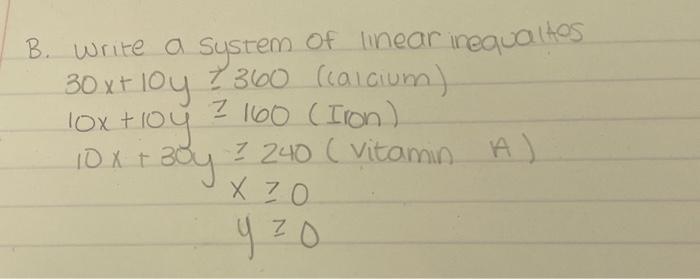 B. Write a system of linear inequaltos
30x+10y ≥ 360 (calcium)
10x+10y ≥ 160 (Iron)
10x + 30y ≥ 240 (Vitamin A)
x ≥ 0
y ≥ 0